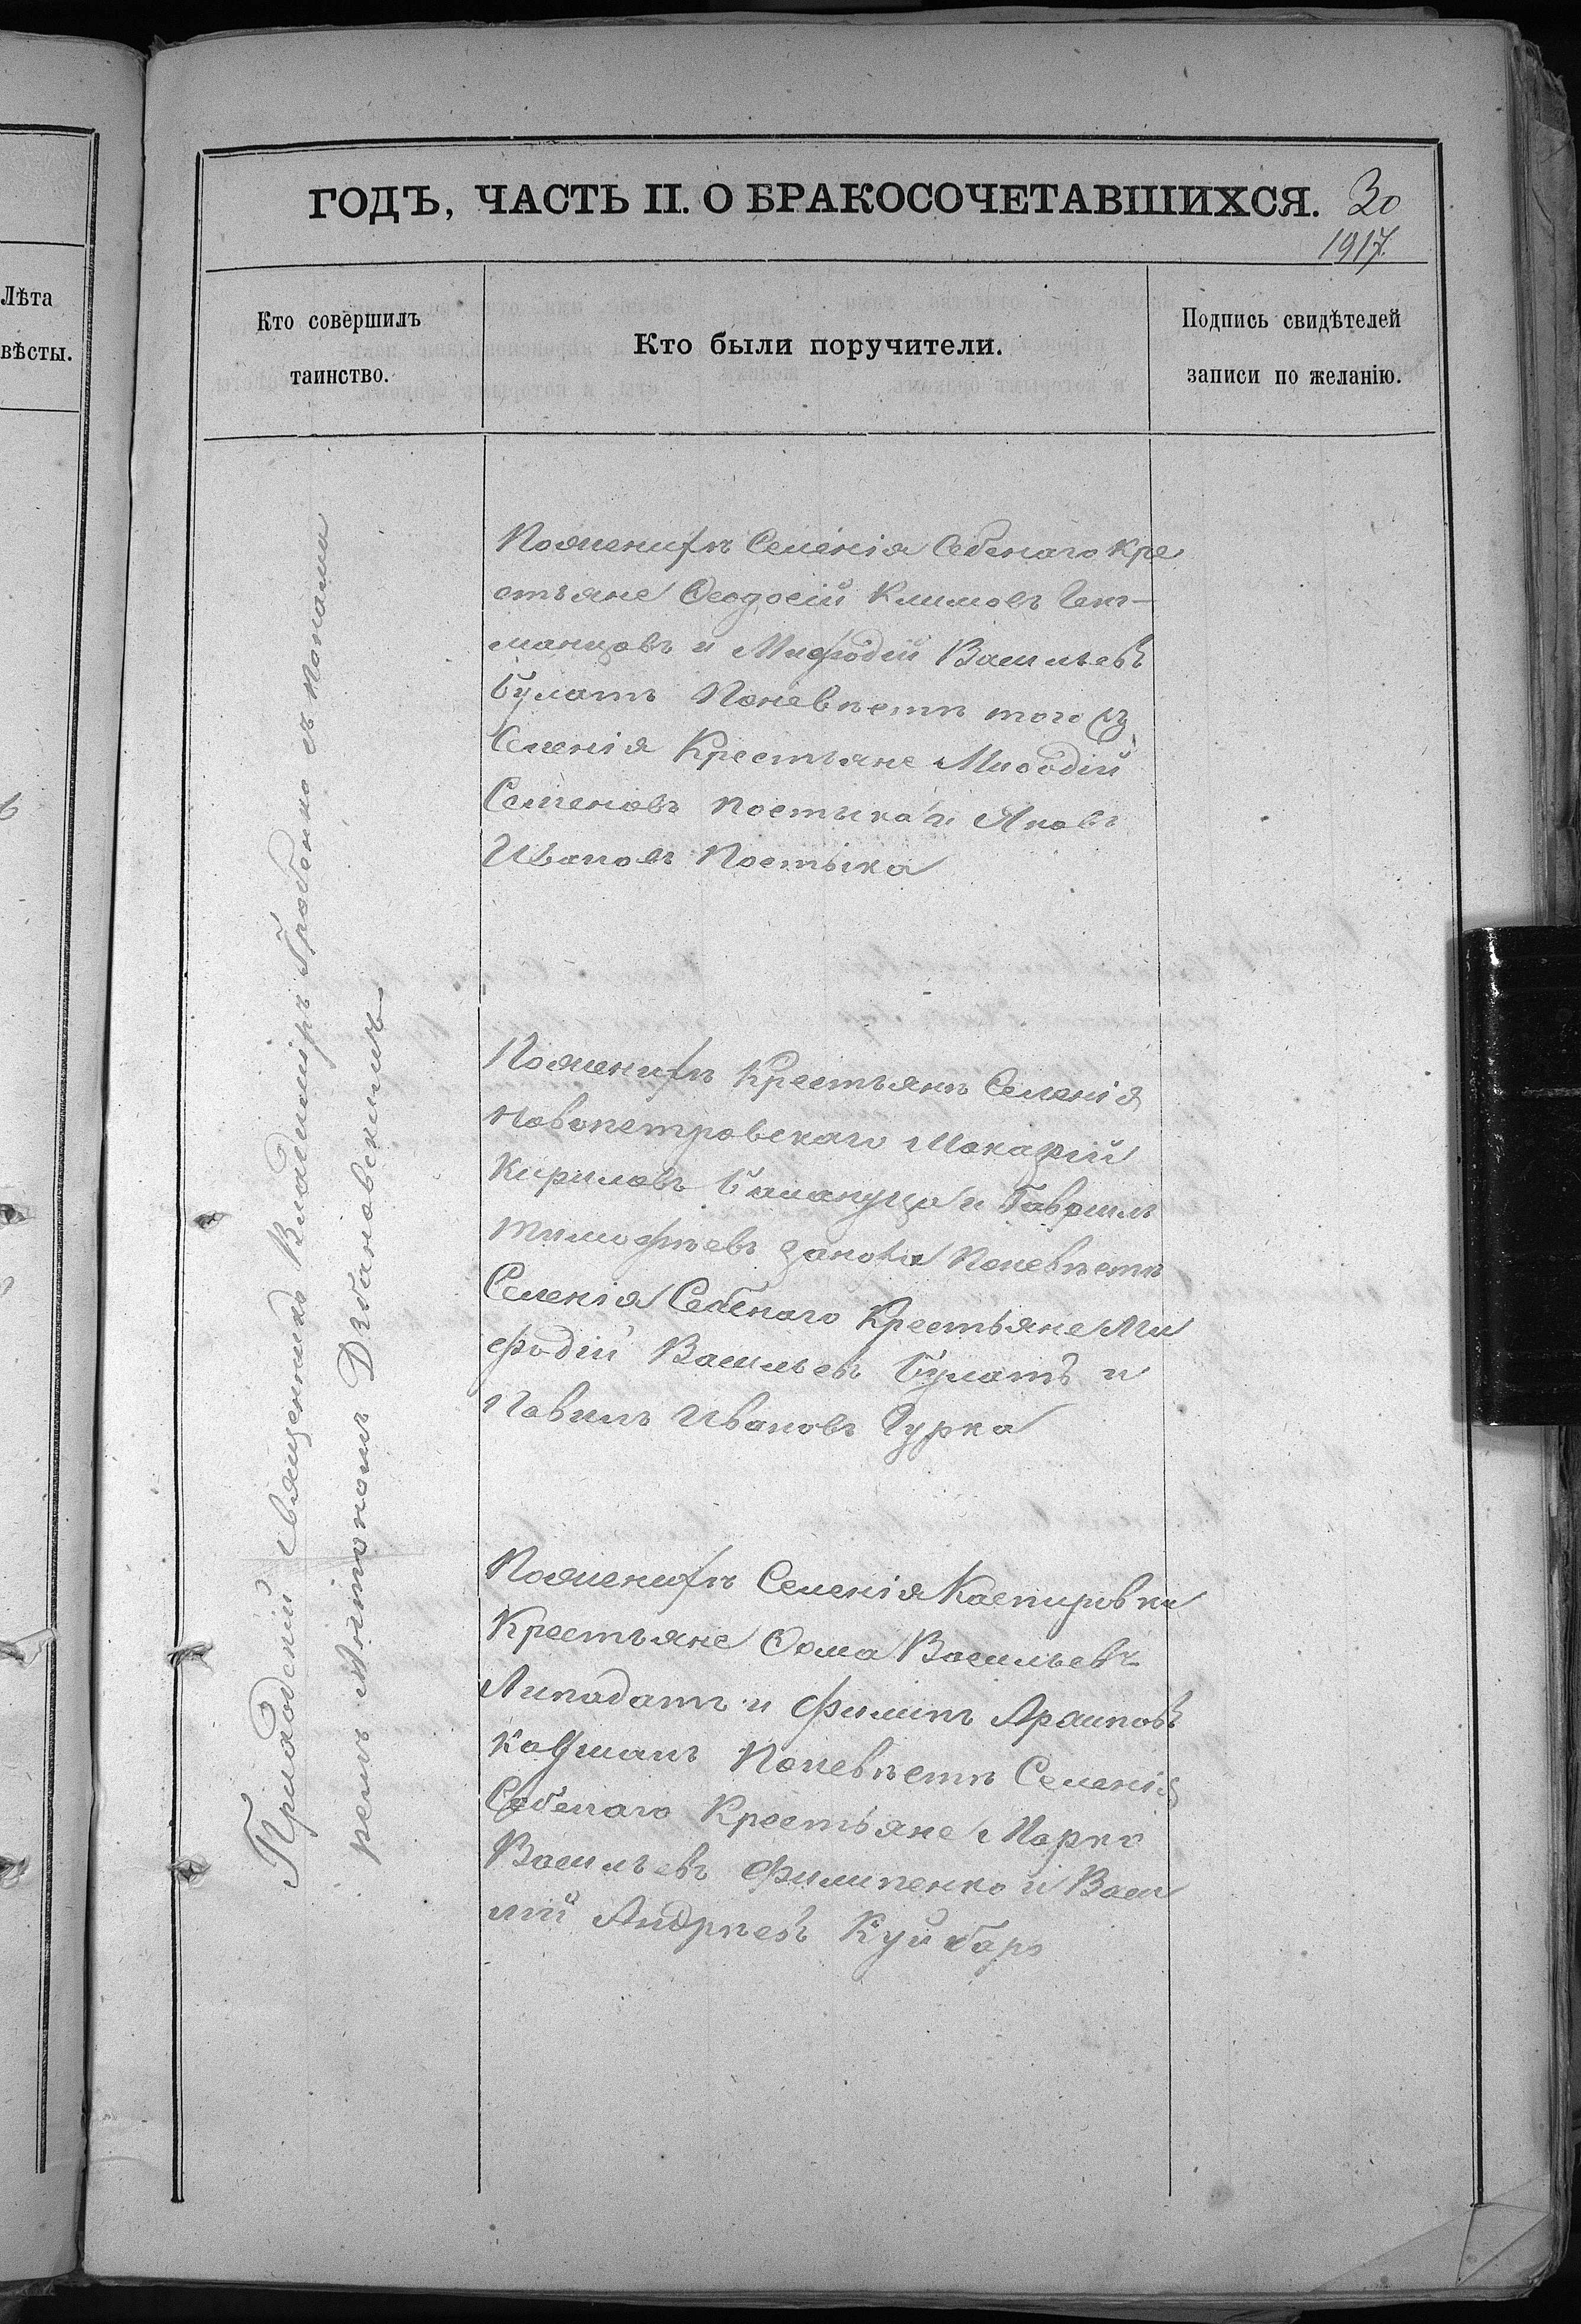 ГОДЪ, ЧАСТЬ II. О БРАКОСОЧЕТАВШИХСЯ. 30
1917.
Лѣта
вѣсты.
Кто совершилъ
таинство.
Кто были поручители.
Подпись свидѣтелей
записи по желанію.
Приходскій священникъ Владиміръ Грабенко съ псалом
Антономъ Дзбановскимъ
По женихѣ Селенія Кре
стьяне Ѳеодосій Климовъ
манцовъ и Мефодій Васильевъ
Булатъ По невѣстѣ того
Селенія Крестьяне Миѳодій
Семеновъ Постыка и Яковъ
Ивановъ Постыка
По женихѣ Крестьянѣ Селенія
Новопетровскаго Макарій
Кириловъ и Гавриилъ
Тимофѣевъ По невѣстѣ
Селенія Крестьяне Ми
фодій Васильев Булатъ и
Павилъ Ивановъ Гурка
По женихѣ Селенія
Крестьяне Ѳома Васильевъ
Липодатъ и Филипъ
По невѣстѣ Селенія
Крестьяне Марко
Васильевъ Филипенко и Васи
лій Андрѣевъ Куйбарь